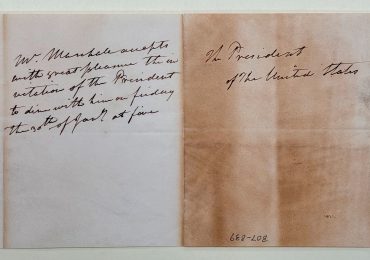 Mr. Marshall accepts
with great pleasure the in
vitation of the President
to dine with him on friday
the 30th of Jany. at five
The President
of The United States
807-839